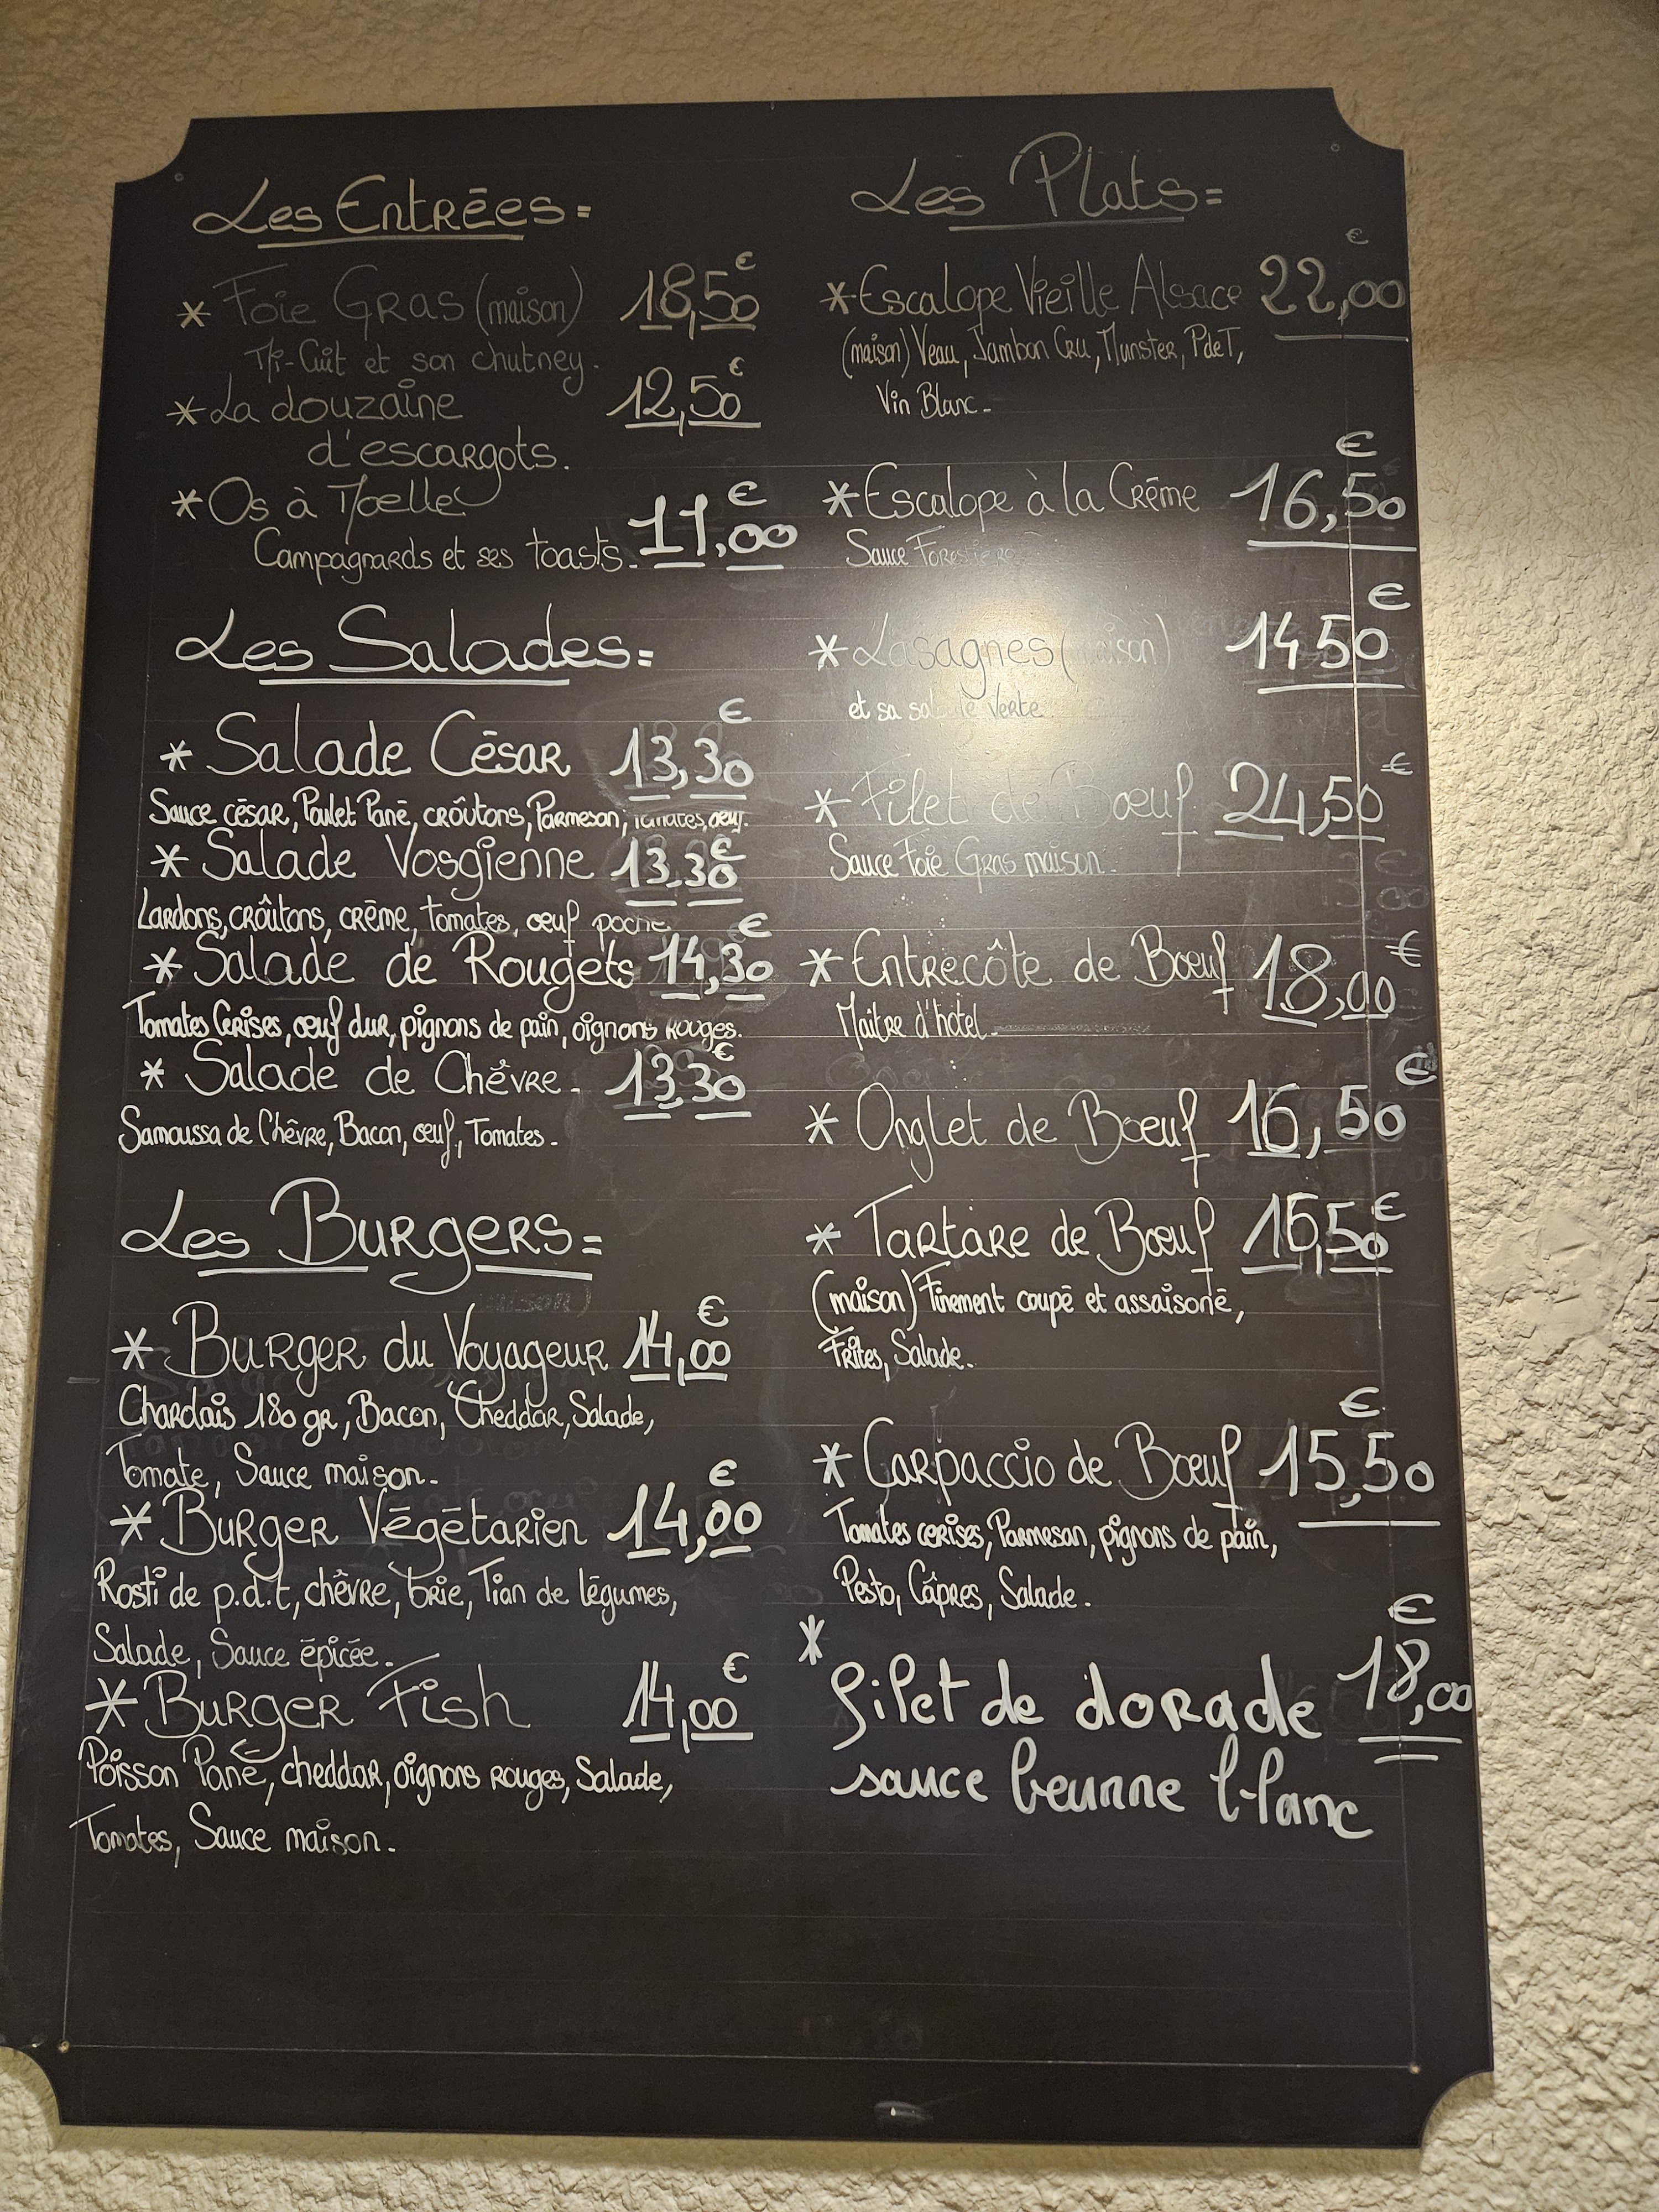 Les Entrées=
* Foie Gras (maison) 18,50€
Mi-Cuit et son chutney.
* La douzaine 12,50€
d'escargots.
* Os à Moelle
Campagnards et ses toasts. 11,00€
Les Salades=
* Salade César 13,30€
Sauce césar, Poulet Pané, croûtons, Parmesan, Tomates, oeuf.
* Salade Vosgienne 13,30€
Lardons, croûtons, crème, tomates, oeuf poché
* Salade de Rougets 14,30€
Tomates Cerises, oeuf dur, pignons de pain, oignons Rouges.
* Salade de Chèvre. 13,30€
Samoussa de Chèvre, Bacon, oeuf, Tomates.
Les Burgers=
* Burger du Voyageur 14,00€
Charolais 180 gr, Bacon, Cheddar, Salade,
Tomate, Sauce maison.
* Burger Végétarien 14,00€
Rosti de p.d.t, chèvre, brie, Tian de légumes,
Salade, Sauce épicée.
* Burger Fish 14,00€
Poisson Pané, cheddar, oignons rouges, Salade,
Tomates, Sauce maison.
Les Plats=
* Escalope Vieille Alsace 22,00€
(maison) Veau, Jambon Cru, Munster, PdeT,
Vin Blanc.
* Escalope à la Crème 16,50€
Sauce Forestière
* Lasagnes (maison) 14,50€
et sa salade Verte
* Filet de Boeuf 24,50€
Sauce Foie Gras maison.
* Entrecôte de Boeuf 18,00€
Maître d'hôtel.
* Onglet de Boeuf 16,50€
* Tartare de Boeuf 16,50€
(maison) Finement coupé et assaisoné,
Frites, Salade.
* Carpaccio de Boeuf 15,50€
Tomates cerises, Parmesan, pignons de pain,
Pesto, Câpres, Salade.
* filet de dorade 18,00€
sauce beurre blanc